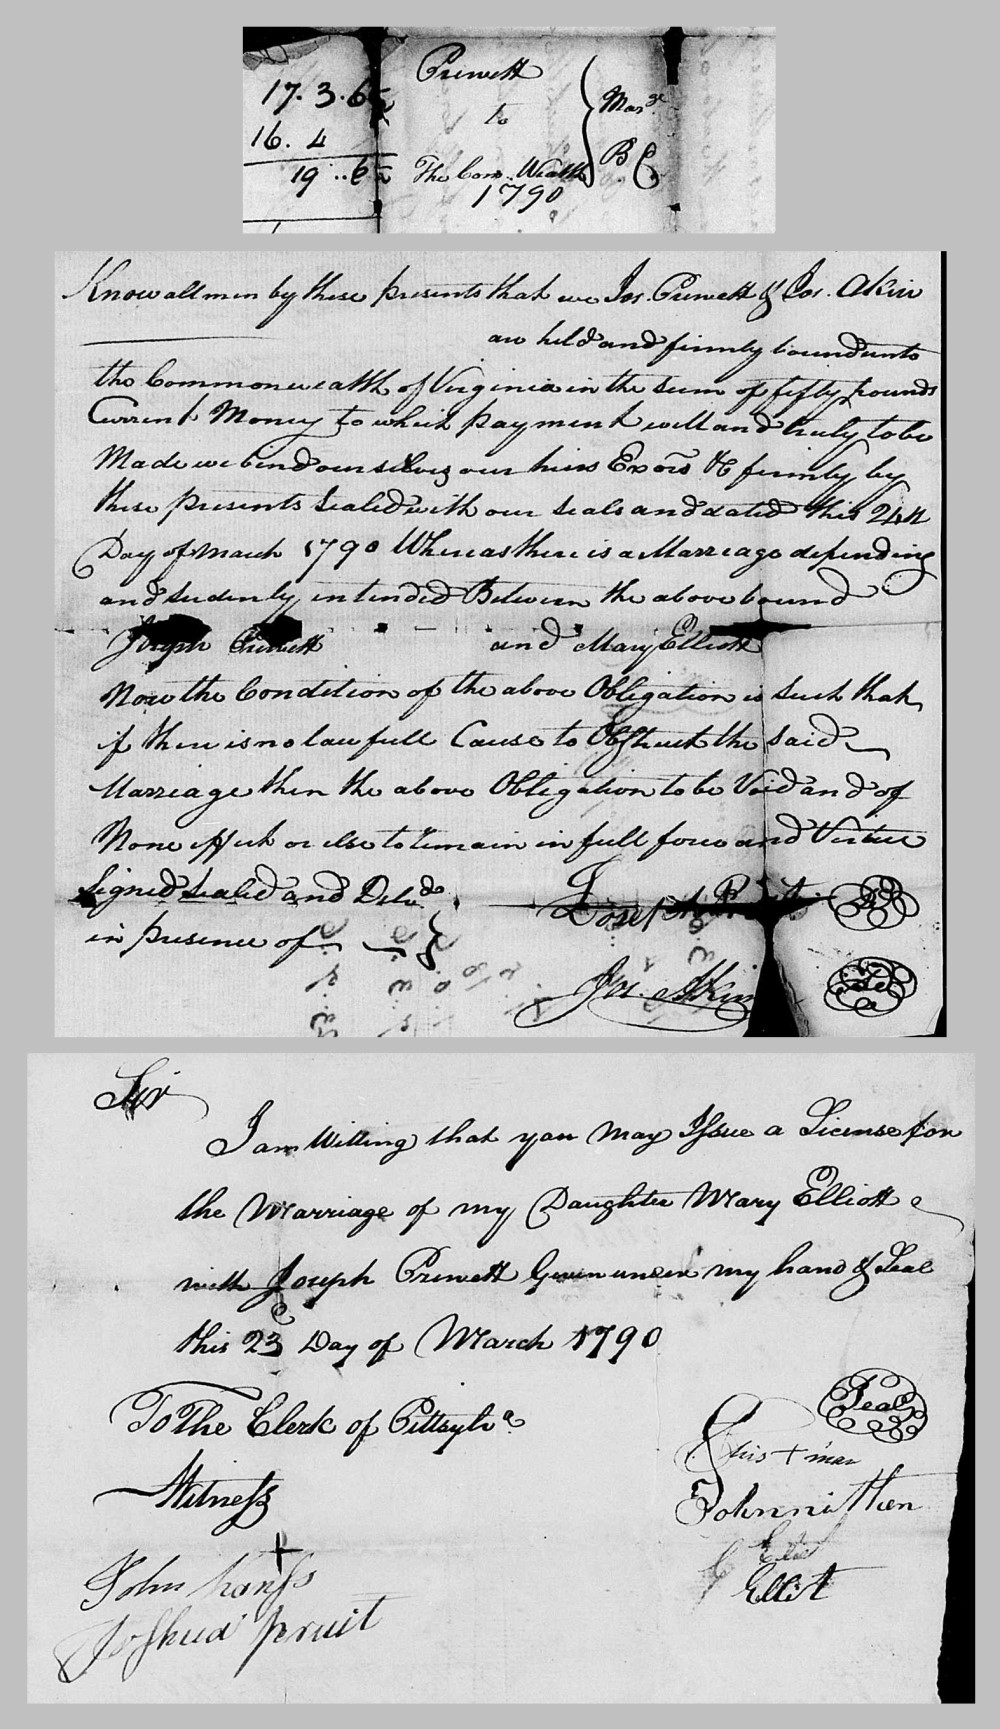 17. 3. 6
16. 4
19 .. 6
Prewett
to
The Com. Wealth
1790
Marge
B C
Know all men by these presents that we Jos. Prewett & Jos. Akin
are held and firmly bound unto
the Commonwealth of Virginia in the sum of fifty pounds
Current Money to which payment well and truly to be
Made we bind ourselves our heirs Exors &c firmly by
these presents Sealed with our seals and dated this 24th
Day of March 1790 Whereas there is a Marriage depending
and sudenly intended Between the above bound
Joseph Prewett and Mary Elliott
Now the Condition of the above Obligation is Such that
if there is no lawfull Cause to Obstruct the said
Marriage then the above Obligation to be Void and of
None effect or else to remain in full force and Virtue
Signed Sealed and Delvd
in presence of
Joseph
Jos. Akin
Sir
I am Willing that you may Issue a License for
the Marriage of my Daughter Mary Elliott
with Joseph Prewett Given under my hand & Seal
this 23 Day of March 1790
To The Clerk of Pittsylva
Seal
his + mar
Witness
Johnnithen
John
Ellit
Joshua pruit